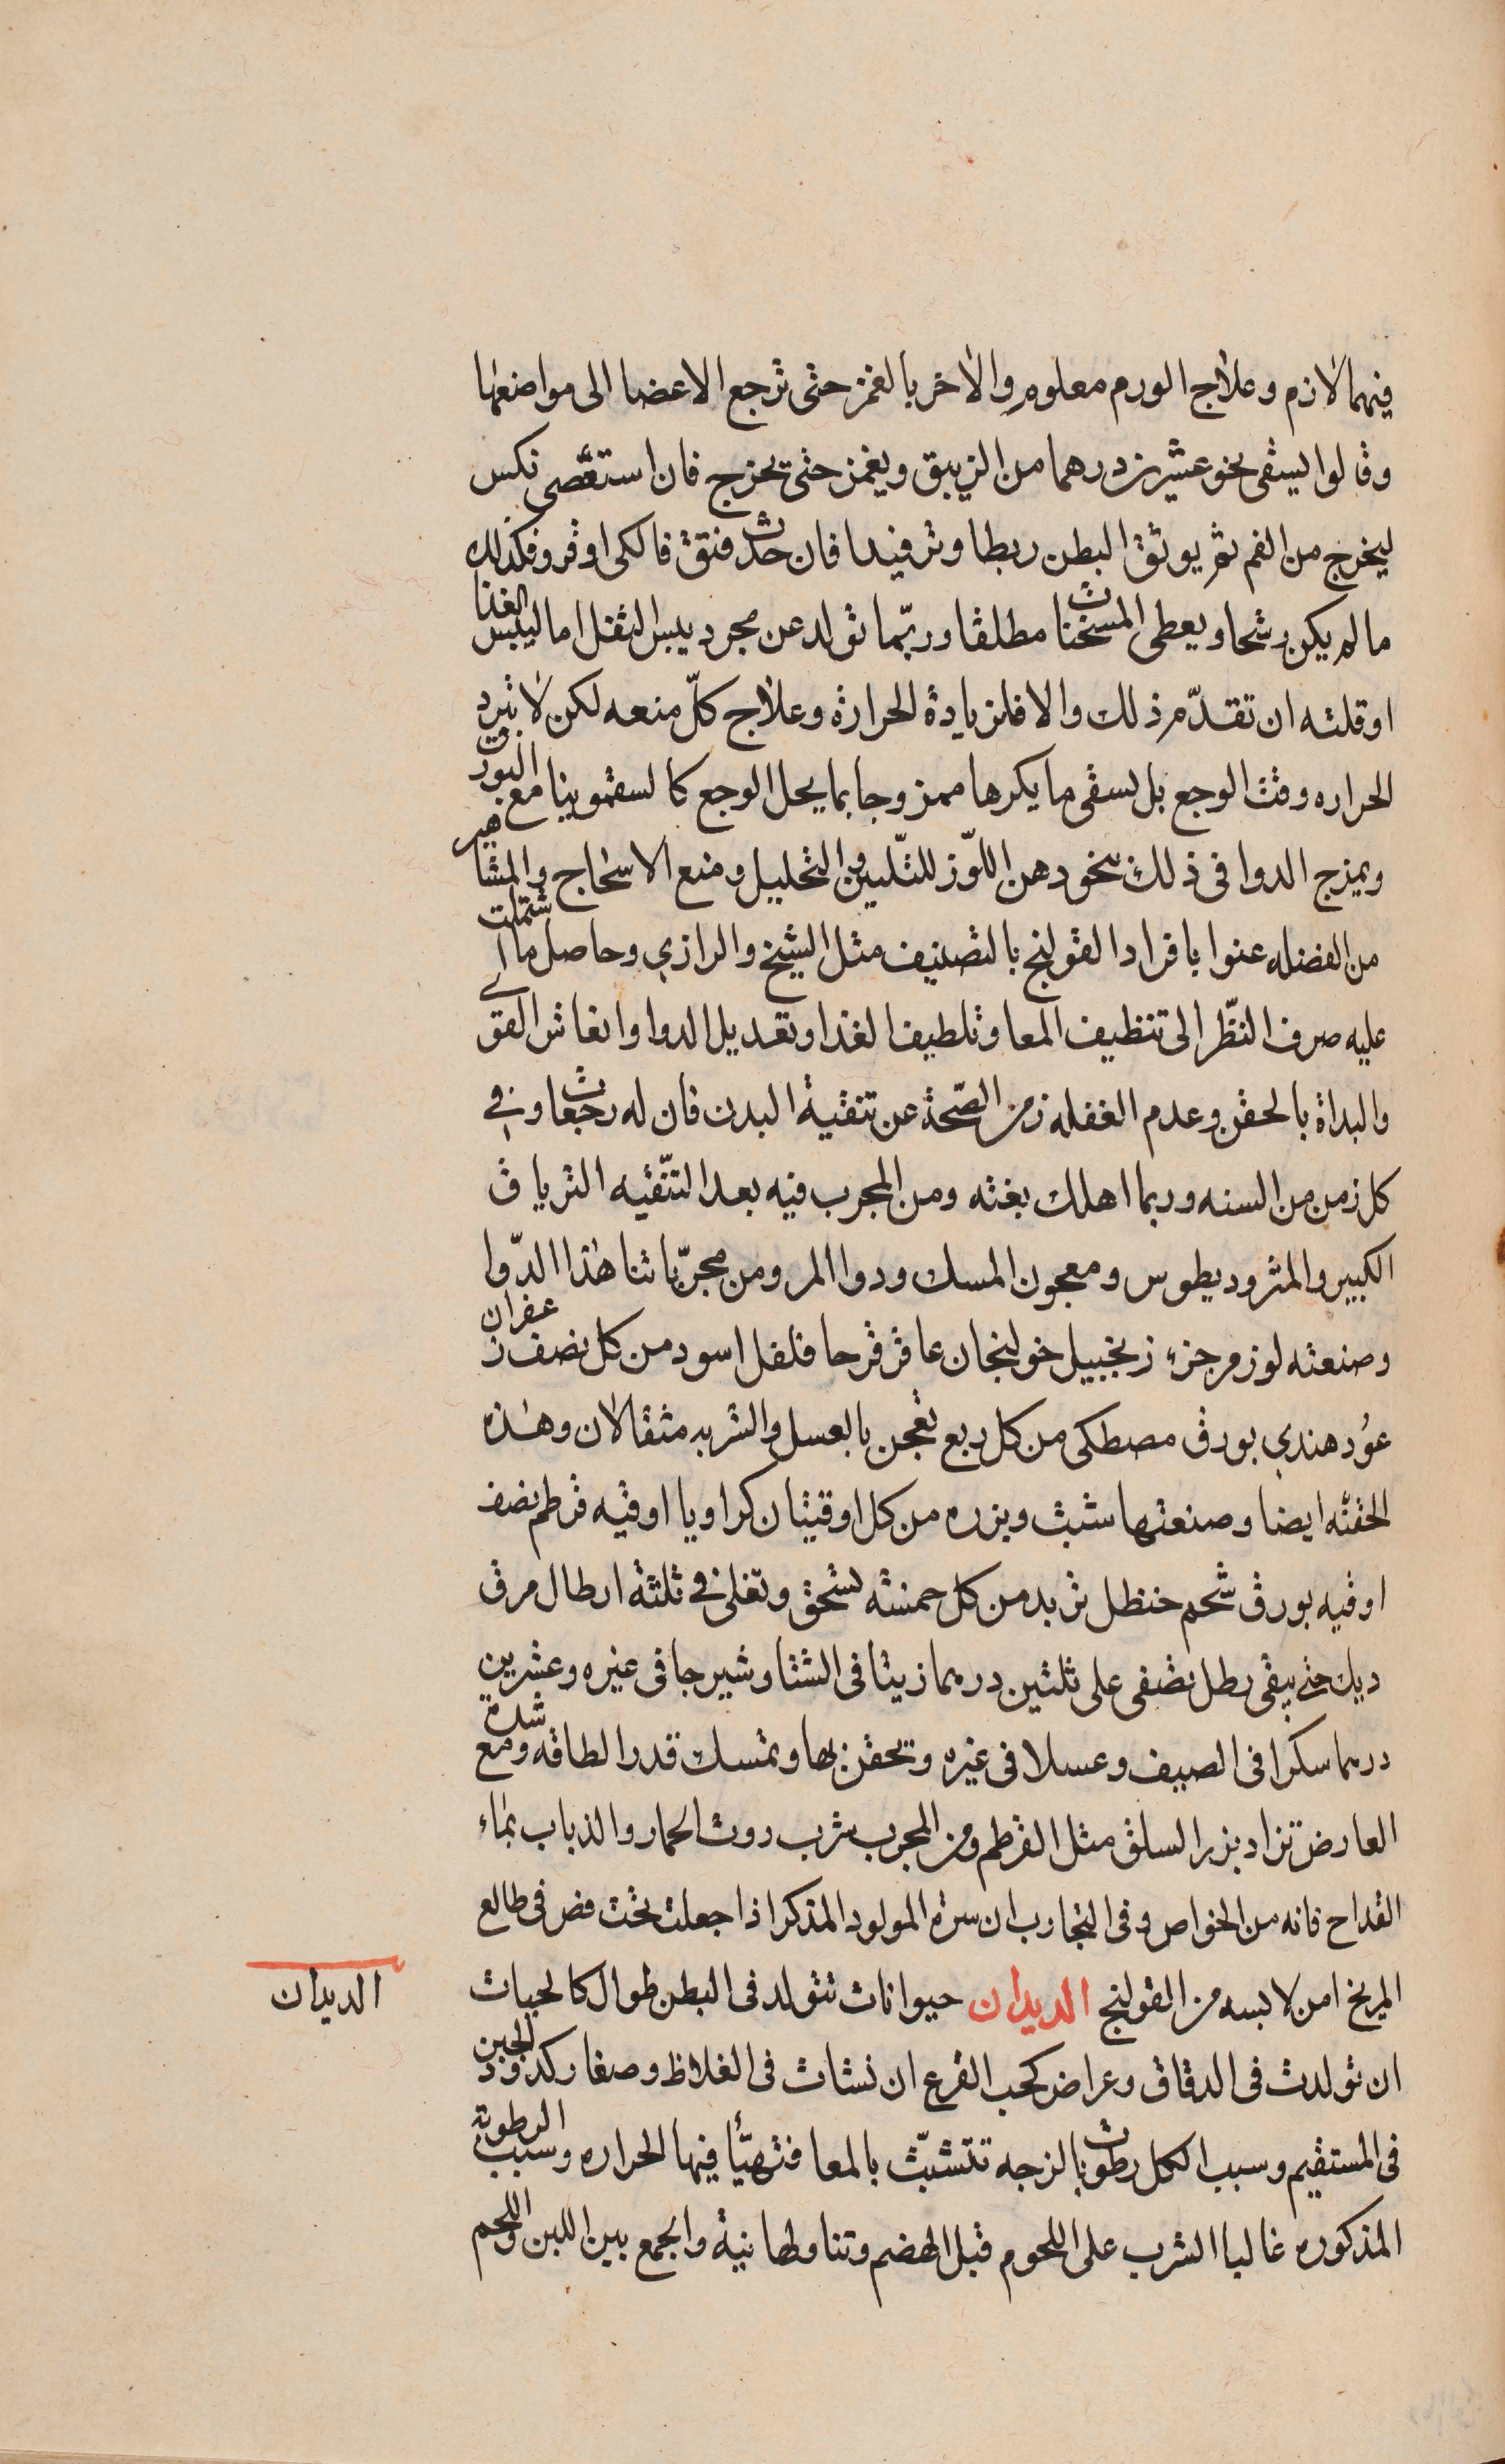 فيهما لازم وعلاج الورم معلوم والاخر بالغمز حتى ترجع الاعضا الى مواضعها
وقالوا يسقى نحو عشرين درهما من الزيبق ويغمز حتى يخرج فان استعصى نكس
ليخرج من الفم ثم يوثق البطن ربطا وترفيدا فان حدث فتق فالكى اوفر وفكذلك
ما لم يكن رشحا ويعطى المسخنات مطلقا وربّما تولد عن مجرد يبس الثفل اما ليبس الغذا
او قلته ان تقدّم ذلك والا فلزيادة الحرارة وعلاج كلّ منعه لكن لا تبرد
الحراره وقت الوجع بل يسقى ما يكرها ممزوجا بما يحل الوجع كالسقمونيا مع البورق
ويمزج الدوا فى ذلك بنحو دهن اللوّز للتّليين والتحليل ومنع الاسحاج والمشاهير
من الفضله عنوا بافراد القولنج بالتصنيف مثل الشيخ والرازي وحاصل ما اشتملت
عليه صرف النظّر الى تنظيف المعا وتلطيف الغذا وتعديل الدوا وانعاش القوى
والبداة بالحقن وعدم الغفله زمن الصّحة عن تنقية البدن فان له رجعات وفي
كل زمن من السنه وربما اهلك بغته ومن المجرب فيه بعد التنّقيه الترياق
الكبير والمثروديطوس ومعجون المسك ودوا المر ومن مجرّباتنا هذا الدّوا
وصنعته لوز مر جزء زنجبيل خولنجان عاقرقرحا فلفل اسود من كل نصف زعفران
عوُد هندي بورق مصطكى من كل ربع تعجن بالعسل والشربه مثقالان وهذه
الحقنه ايضا وصنعتها شبث وبزره من كل اوقيتان كراويا اوقيه قرطم نصف
اوقيه بورق شحم حنظل تربد من كل خمسه تسحق وتغلى في ثلثة ارطال مرق
ديك حتى يبقى رطل تصفى على ثلثين درهما زيتا فى الشتا وشيرجا فى غيره وعشرين
درهما سكرا فى الصيف وعسلا فى غيره وتحقن بها وتمسك قدر الطاقه ومع شدة
العارض تزاد بزر السلق مثل القرطم ومن المجرب شرب روث الحمار والذباب بماء
القداح فانه من الخواص وفى التجارب ان سرة المولود المذكر اذا جعلت تحت فص فى طالع
المريخ امن لابسه من القولنج الديدان حيوانات تتولد فى البطن طوال كالحيات
الديدان
ان تولدت فى الدقاق وعراض كحب القرع ان نشات فى الغلاظ وصغار كدود الجبن
فى المستقيم وسبب الكل رطوبات لزجه تتشبّث بالمعا فتهيّأ فيها الحراره وسبب الرطوبة
المذكوره غالبا الشرب على اللحوم قبل الهضم وتناولها نية والجمع بين اللبن واللحم